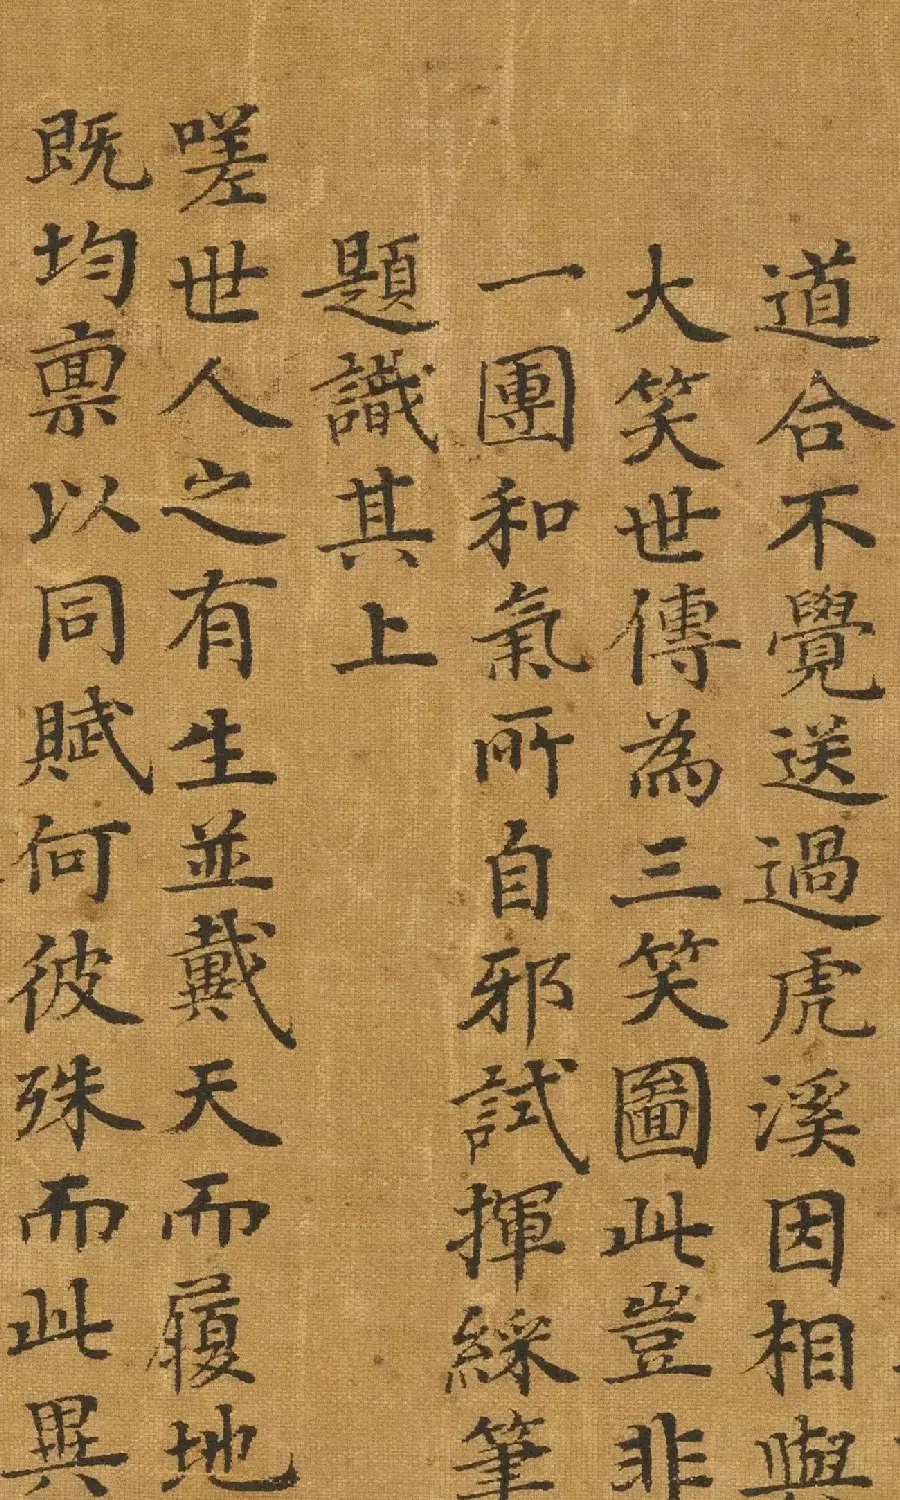 道合不覺送過虎溪因相與
大笑世傳為三笑圖此豈非
一團和氣所自邪試揮綵筆
題識其上
嗟世人之有生並戴天而履地
既均稟以同賦何彼殊而此異